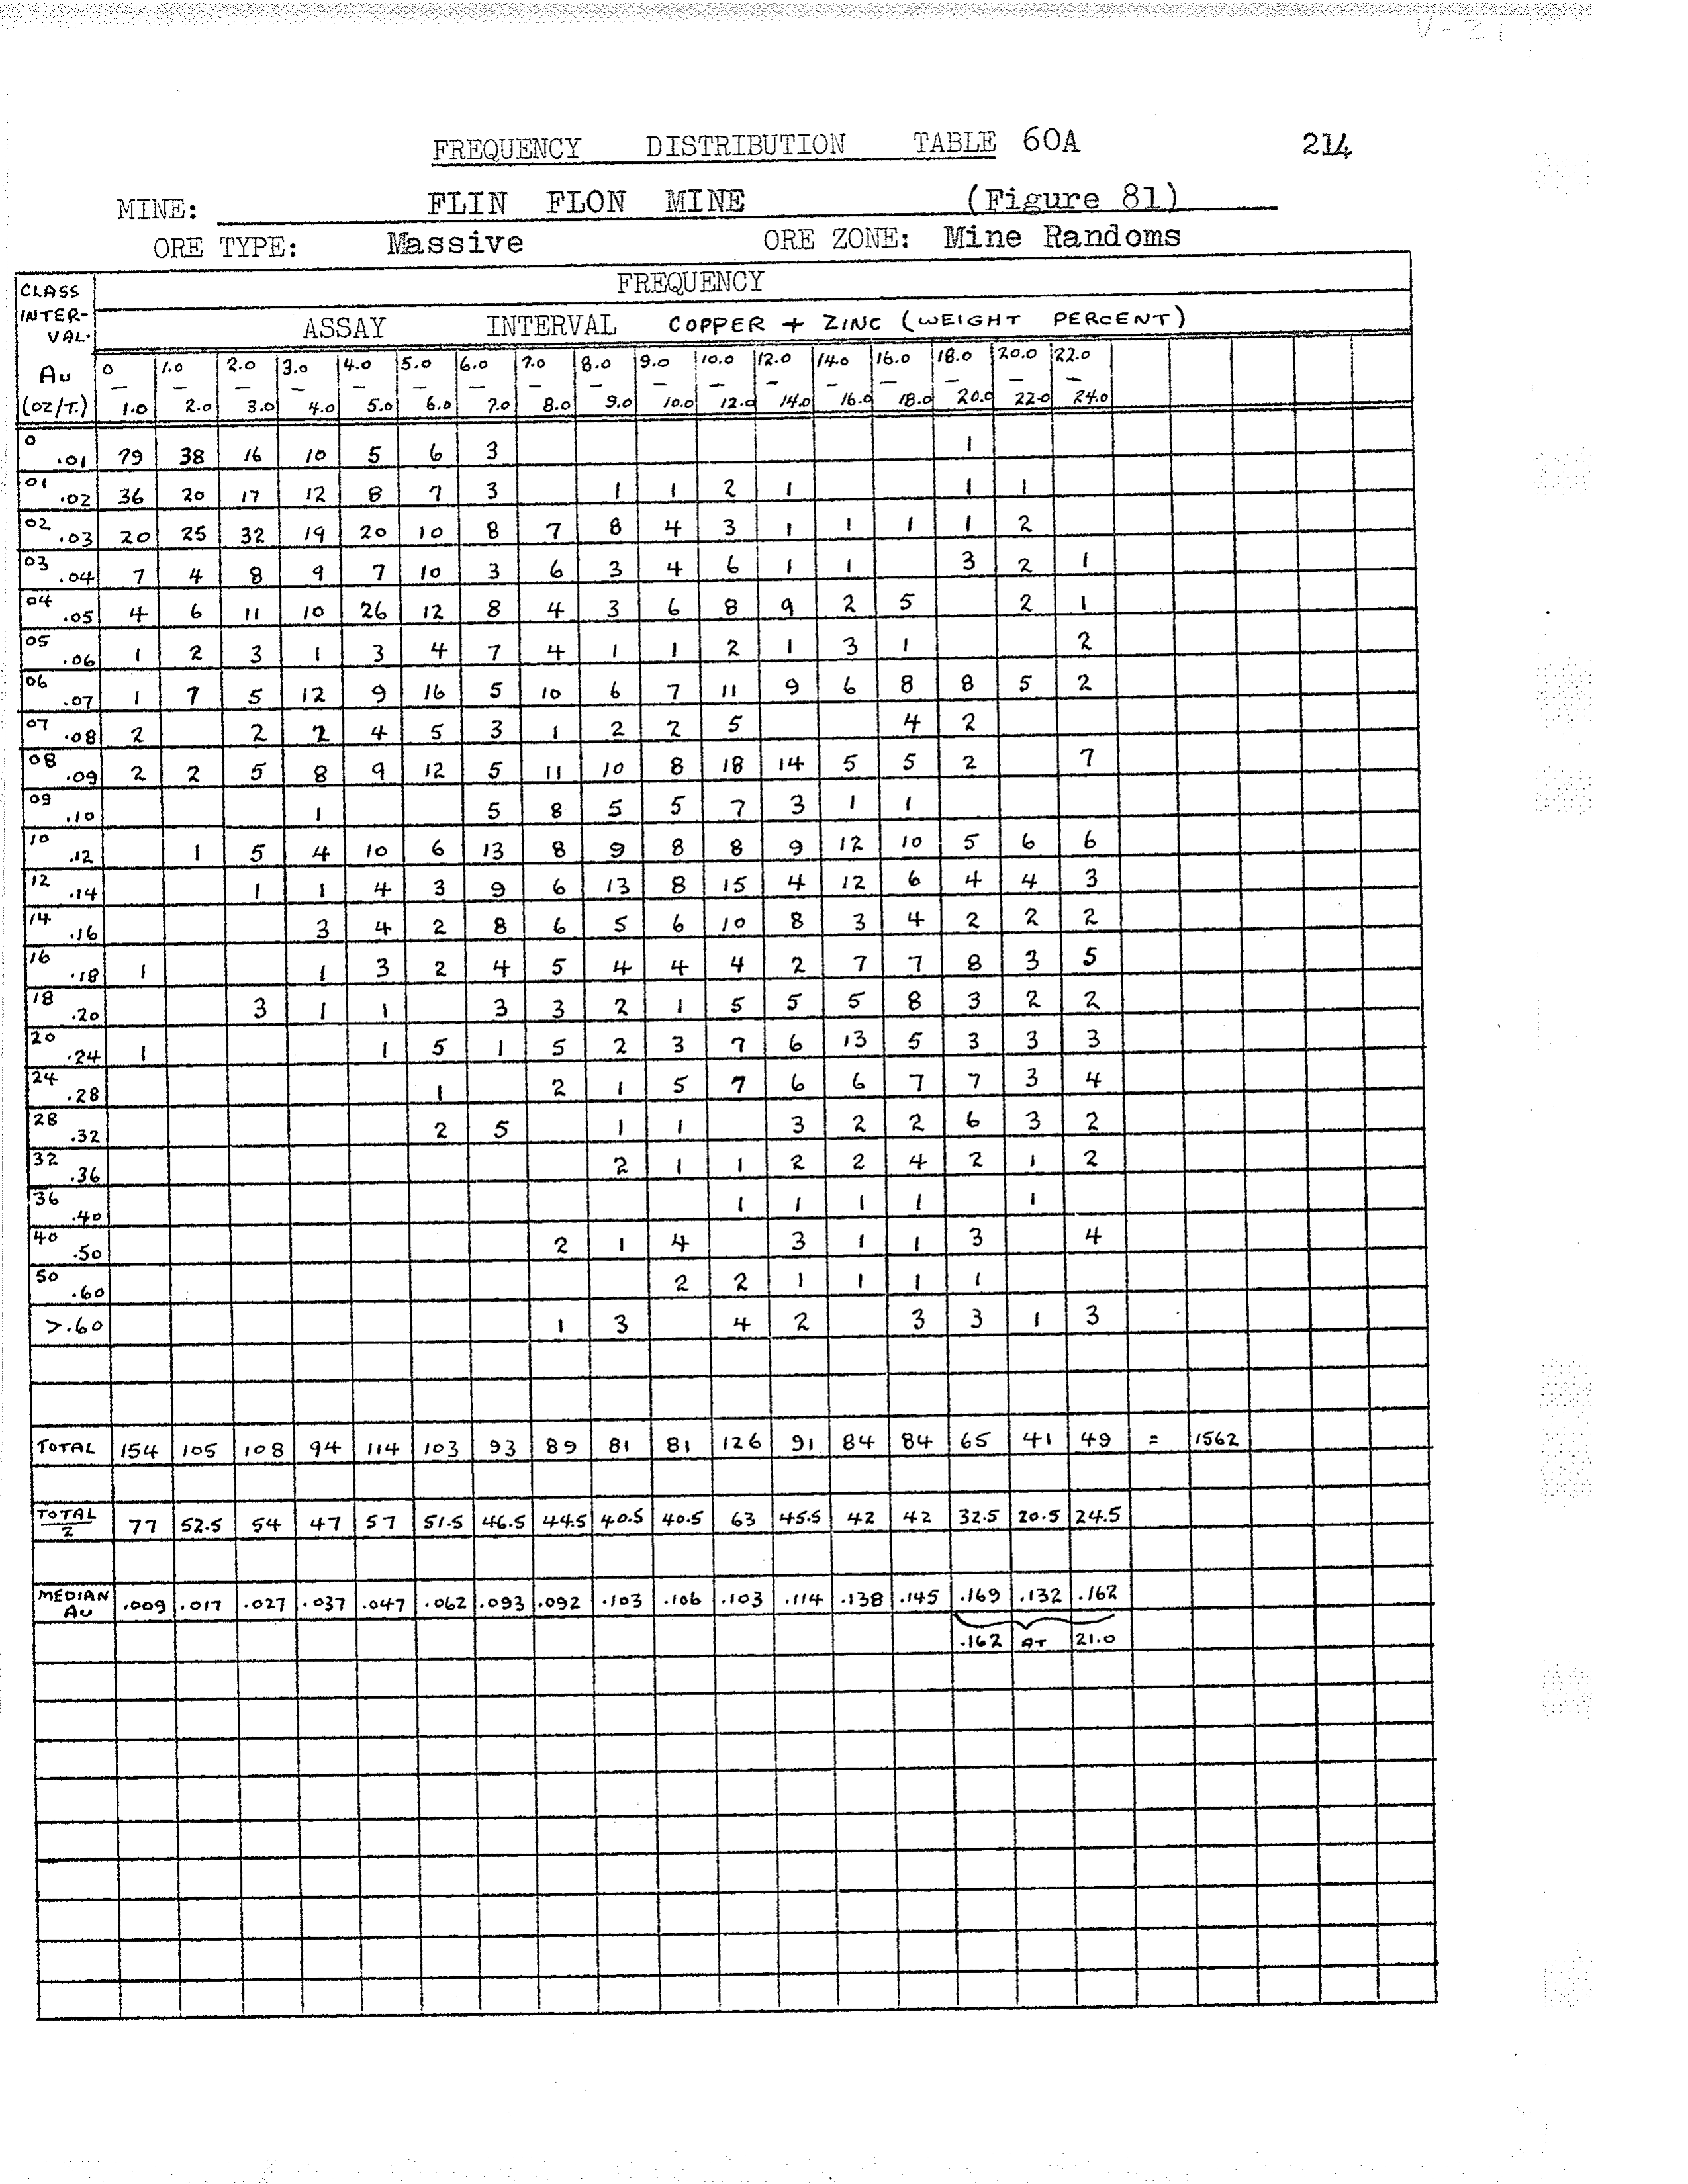 V-21
FREQUENCY DISTRIBUTION TABLE 60A 214
MINE: FLIN FLON MINE (Figure 81)
ORE TYPE: Massive ORE ZONE: Mine Randoms
CLASS INTER-VAL. FREQUENCY
ASSAY INTERVAL COPPER + ZINC (WEIGHT PERCENT)
Au (OZ/T.) 0 – 1.0 1.0 – 2.0 2.0 – 3.0 3.0 – 4.0 4.0 – 5.0 5.0 – 6.0 6.0 – 7.0 7.0 – 8.0 8.0 – 9.0 9.0 – 10.0 10.0 – 12.0 12.0 – 14.0 14.0 – 16.0 16.0 – 18.0 18.0 – 20.0 20.0 – 22.0 22.0 – 24.0
0 .01 79 38 16 10 5 6 3 1
01 .02 36 20 17 12 8 7 3 1 1 2 1 1 1
02 .03 20 25 32 19 20 10 8 7 8 4 3 1 1 1 1 2
03 .04 7 4 8 9 7 10 3 6 3 4 6 1 1 3 2 1
04 .05 4 6 11 10 26 12 8 4 3 6 8 9 2 5 2 1
05 .06 1 2 3 1 3 4 7 4 1 1 2 1 3 1 2
06 .07 1 7 5 12 9 16 5 10 6 7 11 9 6 8 8 5 2
07 .08 2 2 2 4 5 3 1 2 2 5 4 2
08 .09 2 2 5 8 9 12 5 11 10 8 18 14 5 5 2 7
09 .10 1 5 8 5 5 7 3 1 1
10 .12 1 5 4 10 6 13 8 9 8 8 9 12 10 5 6 6
12 .14 1 1 4 3 9 6 13 8 15 4 12 6 4 4 3
14 .16 3 4 2 8 6 5 6 10 8 3 4 2 2 2
16 .18 1 1 3 2 4 5 4 4 4 2 7 7 8 3 5
18 .20 3 1 1 3 3 2 1 5 5 5 8 3 2 2
20 .24 1 1 5 1 5 2 3 7 6 13 5 3 3 3
24 .28 1 2 1 5 7 6 6 7 7 3 4
28 .32 2 5 1 1 3 2 2 6 3 2
32 .36 2 1 1 2 2 4 2 1 2
36 .40 1 1 1 1 1
40 .50 2 1 4 3 1 1 3 4
50 .60 2 2 1 1 1 1
>.60 1 3 4 2 3 3 1 3
TOTAL 154 105 108 94 114 103 93 89 81 81 126 91 84 84 65 41 49 = 1562
TOTAL/2 77 52.5 54 47 57 51.5 46.5 44.5 40.5 40.5 63 45.5 42 42 32.5 20.5 24.5
MEDIAN Au .009 .017 .027 .037 .047 .062 .093 .092 .103 .106 .103 .114 .138 .145 .169 .132 .162
.162 AT 21.0